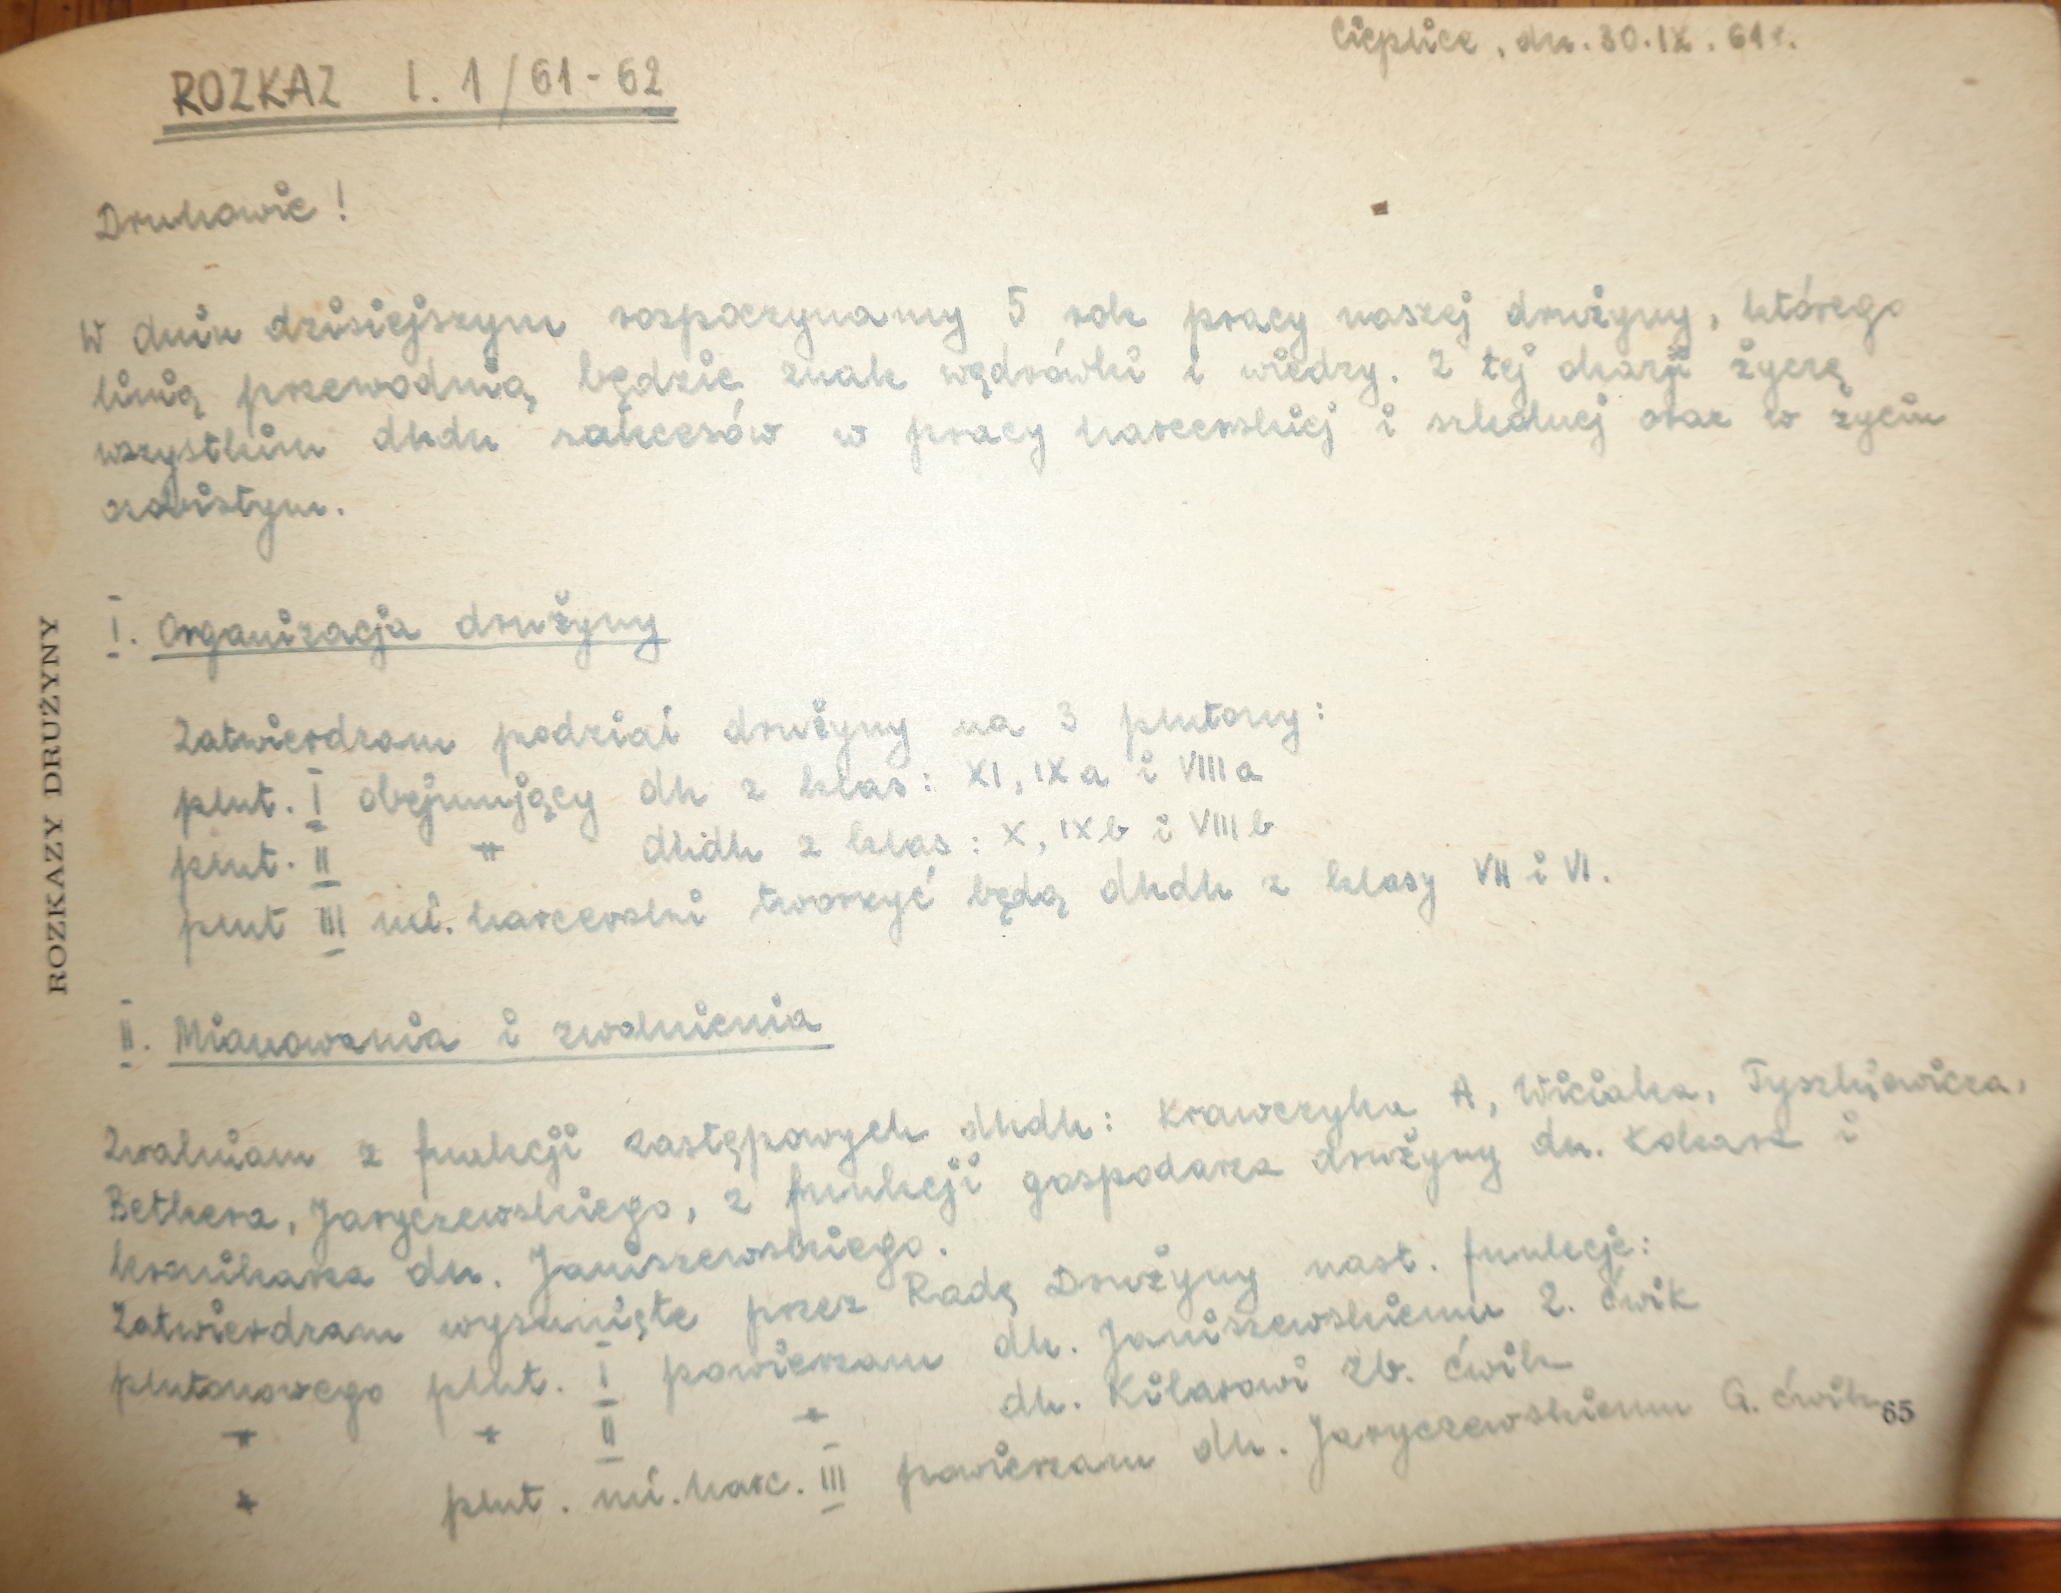 Cieplice, dn. 30.IX.61r.
ROZKAZ l. 1/61-62
Druhowie!
W dniu dzisiejszym rozpoczynamy 5 rok pracy naszej drużyny, którego
linią przewodnią będzie znak wędrówki i wiedzy. Z tej okazji życzę
wszystkim dhdh sukcesów w pracy harcerskiej i szkolnej oraz w życiu
osobistym.
I. Organizacja drużyny
Zatwierdzam podział drużyny na 3 plutony:
plut. I obejmujący dh z klas: XI, IXa i VIIIa
plut. II -"- dhdh z klas: X, IXb i VIIIb
plut III mł. harcerski tworzyć będą dhdh z klasy VII i VI.
II. Mianowania i zwolnienia
Zwalniam z funkcji zastępowych dhdh: Krawczyka A, Wiciaka, Tyszkiewicza,
Betkera, Jaryczewskiego, z funkcji gospodarza drużyny dh. Kokasza i
kronikarza dh. Janiszewskiego.
Zatwierdzam wysunięte przez Radę Drużyny nast. funkcje:
plutonowego plut. I powierzam dh. Janiszewskiemu Z. ćwik
-"- -"- II -"- dh. Kilarowi Zb. ćwik
-"- plut. mł. harc. III powierzam dh. Jaryczewskiemu G. ćwik
65
ROZKAZY DRUŻYNY